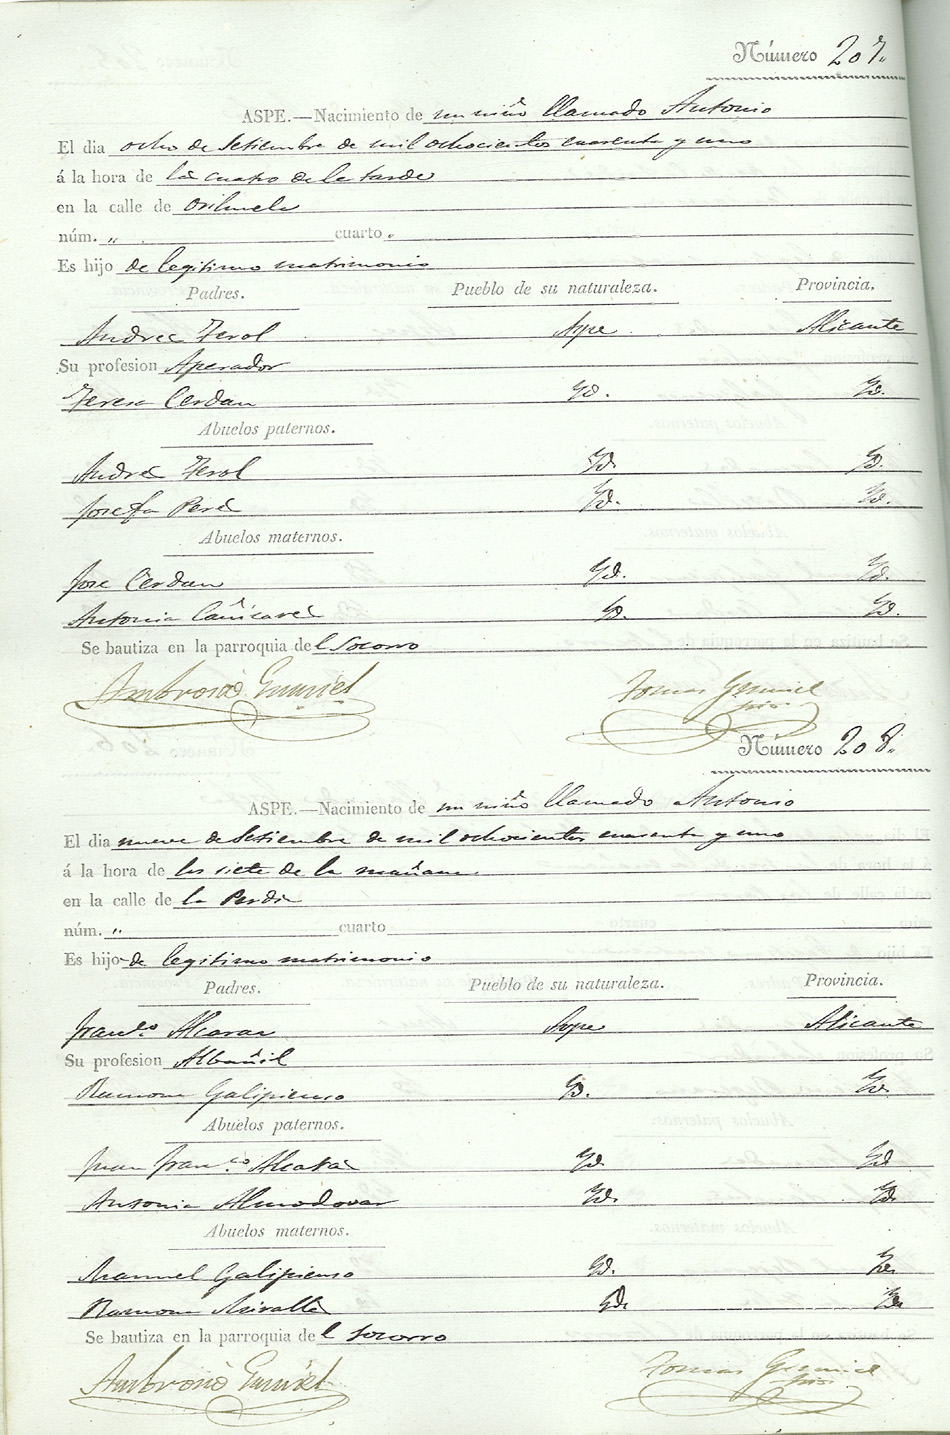 Número 207.
ASPE.—Nacimiento de un niño llamado Antonio
El dia ocho de Setiembre de mil ochocientos cuarenta y uno
á la hora de las cuatro de la tarde
en la calle de Orihuela
núm. " cuarto "
Es hijo de legitimo matrimonio
Padres. Pueblo de su naturaleza. Provincia.
Andres Terol Aspe Alicante
Su profesion Aperador
Teresa Cerdan Yd. Yd.
Abuelos paternos.
Andres Terol Yd. Yd.
Josefa Yd. Yd.
Abuelos maternos.
Jose Cerdan Yd. Yd.
Antonia Cañizares Yd. Yd.
Se bautiza en la parroquia del Socorro
Ambrosio Tomas
Número 208.
ASPE.—Nacimiento de un niño llamado Antonio
El dia nueve de Setiembre de mil ochocientos cuarenta y uno
á la hora de las siete de la mañana
en la calle de la
núm. " cuarto
Es hijo de legitimo matrimonio
Padres. Pueblo de su naturaleza. Provincia.
Franco. Alcaraz Aspe Alicante
Su profesion Albañil
Ramona Galipienso Yd. Yd.
Abuelos paternos.
Juan Franco. Alcaraz Yd. Yd.
Antonia Almodovar Yd. Yd.
Abuelos maternos.
Manuel Galipienso Yd. Yd.
Ramona Miralles Yd. Yd.
Se bautiza en la parroquia del Socorro
Ambrosio Tomas